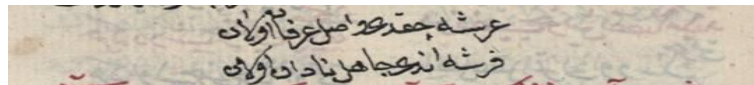 عرشه چقدی واصل عرفان اولان
فرشه اندی جاهل نادان اولان